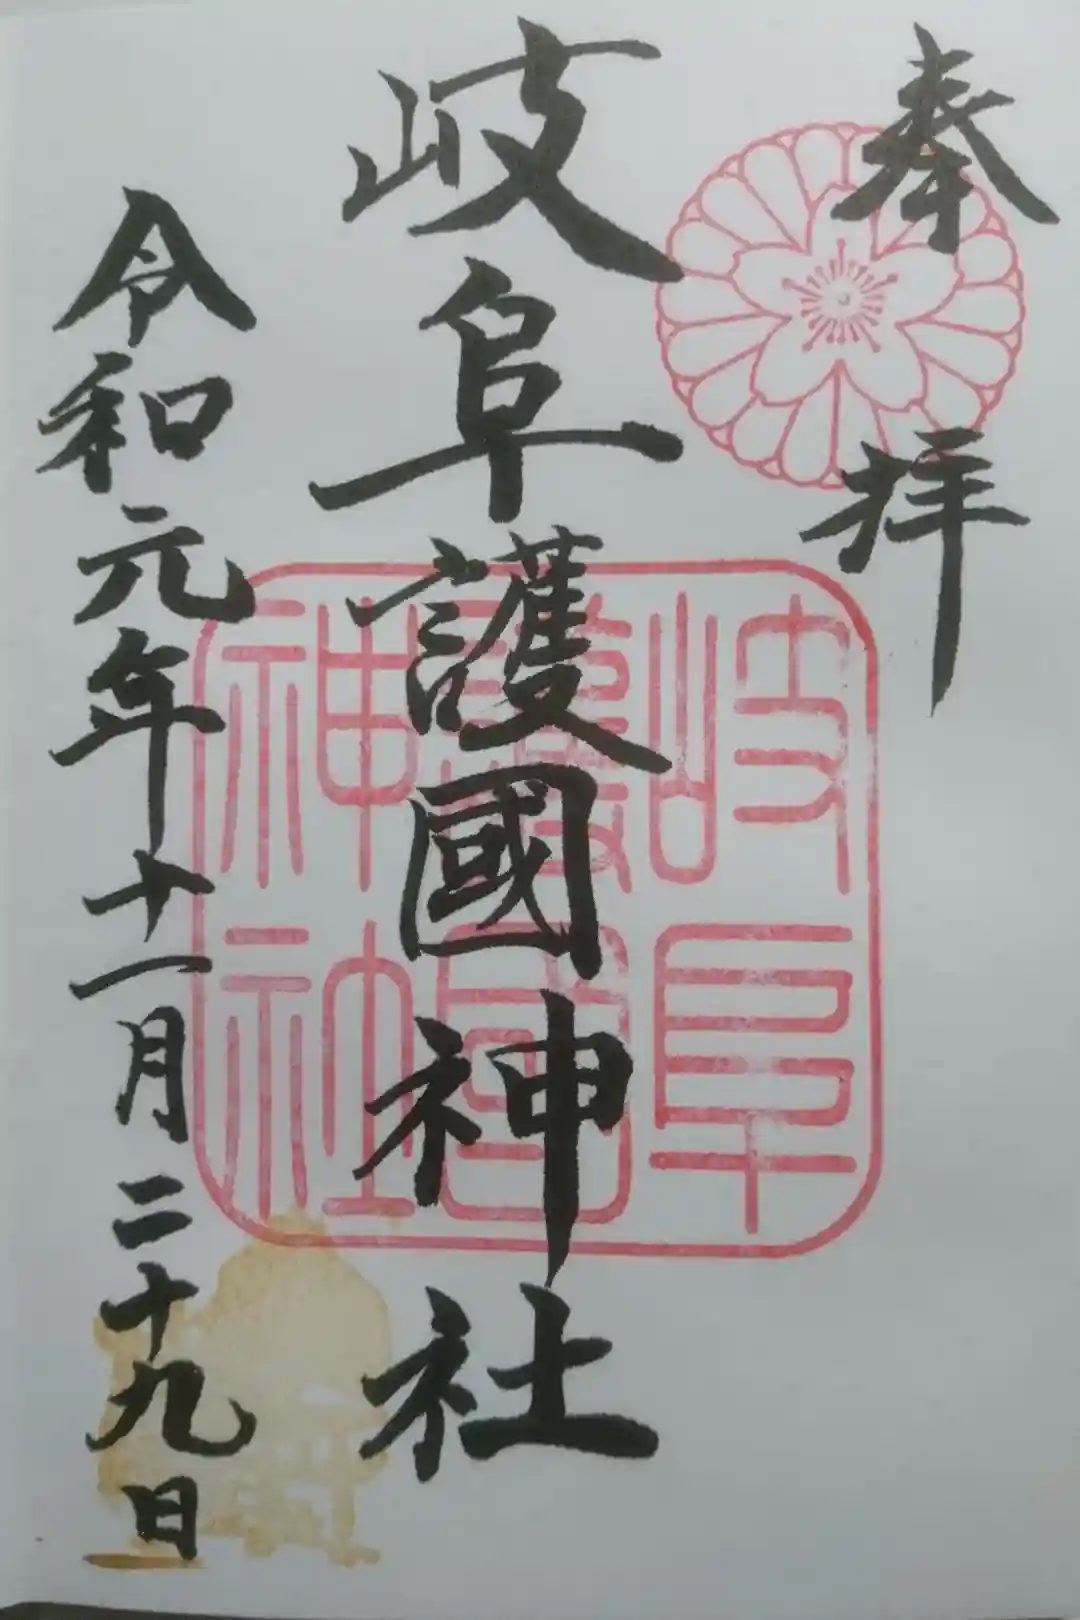 奉拝
岐阜護國神社
岐阜
護国
神社
令和元年十一月二十九日